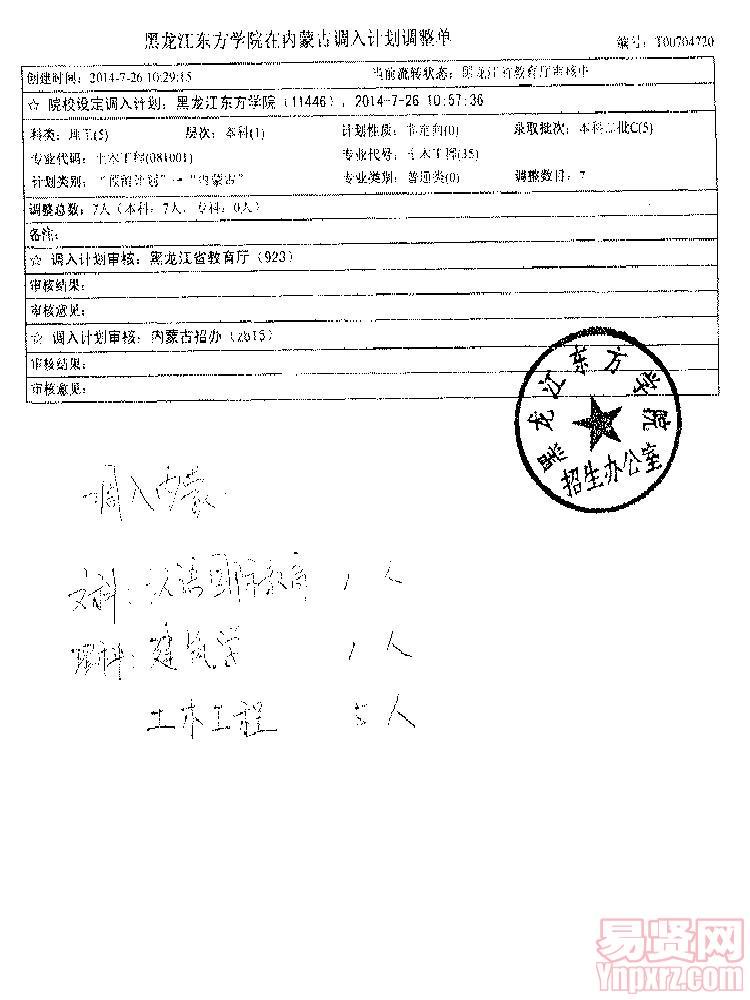 黑龙江东方学院在内蒙古调入计划调整单
编号: T00704720
创建时间: 2014-7-26 10:29:15 当前流转状态: 黑龙江省教育厅审核中
☆ 院校设定调入计划: 黑龙江东方学院 (11446), 2014-7-26 10:57:36
科类: 理工(5) 层次: 本科(1) 计划性质: 非定向(0) 录取批次: 本科二批C(5)
专业代码: 土木工程(081001) 专业代号: 土木工程(35)
计划类别: "预留计划"→"内蒙古" 专业类别: 普通类(0) 调整数目: 7
调整总数: 7人 (本科: 7人, 专科: 0人)
备注:
☆ 调入计划审核: 黑龙江省教育厅 (923)
审核结果:
审核意见:
☆ 调入计划审核: 内蒙古招办 (2015)
审核结果:
审核意见:
黑龙江东方学院
招生办公室
调入内蒙
文科: 汉语国际教育 1人
理科: 建筑学 1人
土木工程 5人
易贤网
Ynpxrz.com